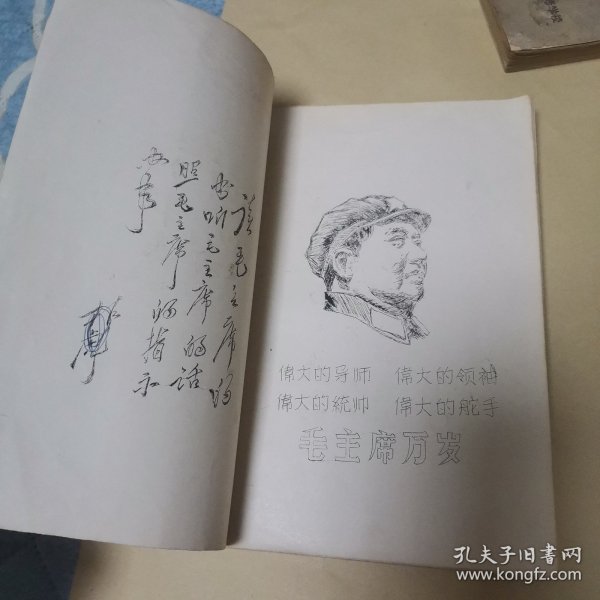 读毛主席的
书听毛主席的话
照毛主席的指示
办事
偉大的导师 偉大的领袖
偉大的統帅 偉大的舵手
毛主席万岁
孔夫子旧书网
www.kongfz.com